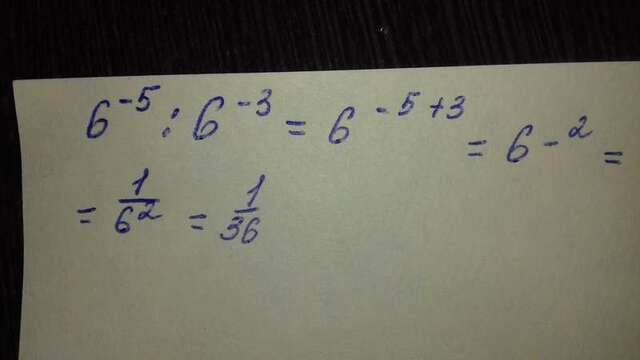 6⁻⁵ : 6⁻³ = 6⁻⁵⁺³ = 6⁻² =
= 1/6² = 1/36